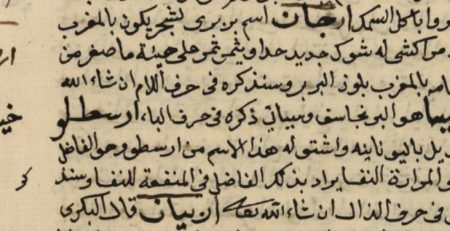 باكل السمك ارجان اسم بربري لشجر يكون بالمغرب
له شوك حديد حدا ويثمر ثمر على هيئة ما صغر من
بالمغرب بلوز البربر وسنذكره في حرف اللام ان شاء الله
هو البرنجاسف وسياتي ذكره في حرف الباء ارسطلو
باليونانيه واشتق له هذا الاسم من ارسطو وهو الفاضل
النفسا يراد بذلك الفاضل في المنفعة للنفسا وسنذ
في حرف الذال ان شاء الله تعالى قال البكري